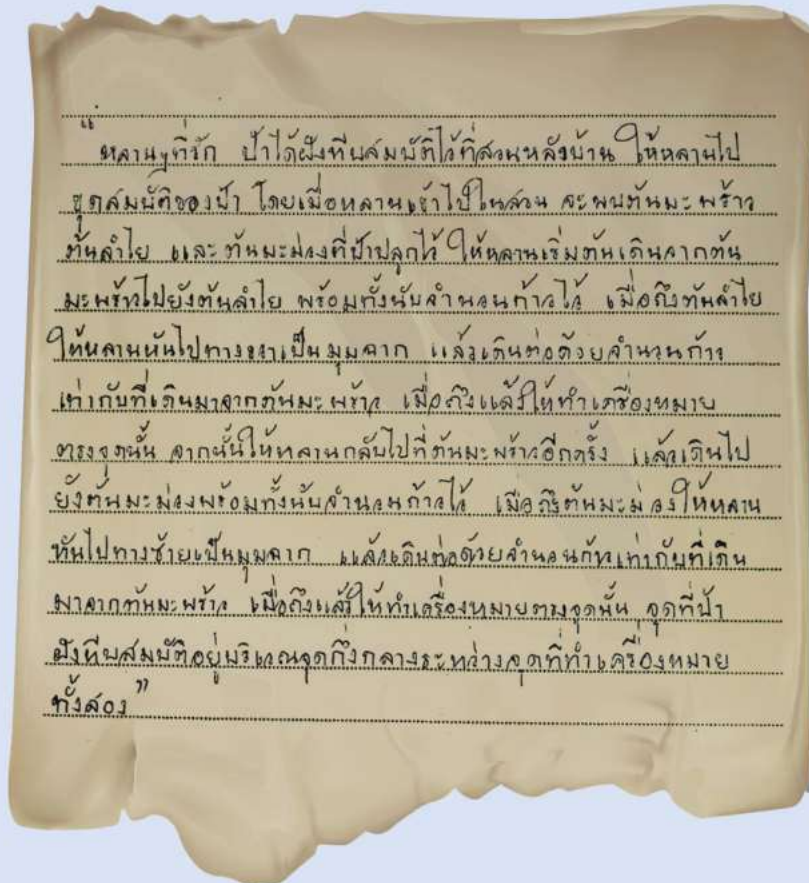 “หลานๆที่รัก ป้าได้ฝังหีบสมบัติไว้ที่สวนหลังบ้าน ให้หลานไป
ขุดสมบัติของป้า โดยเมื่อหลานเข้าไปในสวน จะพบต้นมะพร้าว
ต้นลำไย และต้นมะม่วงที่ป้าปลูกไว้ ให้หลานเริ่มต้นเดินจากต้น
มะพร้าวไปยังต้นลำไย พร้อมทั้งนับจำนวนก้าวไว้ เมื่อถึงต้นลำไย
ให้หลานหันไปทางขวาเป็นมุมฉาก แล้วเดินต่อด้วยจำนวนก้าว
เท่ากับที่เดินมาจากต้นมะพร้าว เมื่อถึงแล้วให้ทำเครื่องหมาย
ตรงจุดนั้น จากนั้นให้หลานกลับไปที่ต้นมะพร้าวอีกครั้ง แล้วเดินไป
ยังต้นมะม่วงพร้อมทั้งนับจำนวนก้าวไว้ เมื่อถึงต้นมะม่วงให้หลาน
หันไปทางซ้ายเป็นมุมฉาก แล้วเดินต่อด้วยจำนวนก้าวเท่ากับที่เดิน
มาจากต้นมะพร้าว เมื่อถึงแล้วให้ทำเครื่องหมายตรงจุดนั้น จุดที่ป้า
ฝังหีบสมบัติอยู่บริเวณจุดกึ่งกลางระหว่างจุดที่ทำเครื่องหมาย
ทั้งสอง”